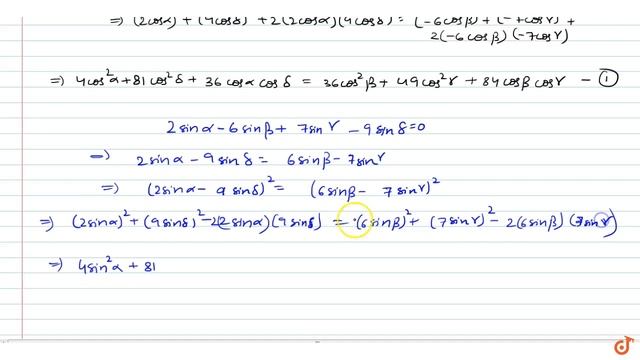 ⇒ (2cosα) + (9cosδ) + 2(2cosα)(9cosδ) = (-6cosβ) + (-7cosγ) +
2(-6cosβ)(-7cosγ)
⇒ 4cos²α + 81cos²δ + 36cosα cosδ = 36cos²β + 49cos²γ + 84cosβ cosγ — ①
2sinα - 6sinβ + 7sinγ - 9sinδ = 0
⇒ 2sinα - 9sinδ = 6sinβ - 7sinγ
⇒ (2sinα - 9sinδ)² = (6sinβ - 7sinγ)²
⇒ (2sinα)² + (9sinδ)² - 2(2sinα)(9sinδ) = (6sinβ)² + (7sinγ)² - 2(6sinβ)(7sinγ)
⇒ 4sin²α + 81